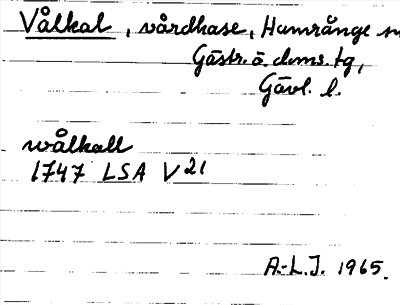 Vålkal, vårdkase, Hamrånge sn
Gästr. ö. doms. tg,
Gävl. l.
wålkall
1747 LSA V21
A.-L.J. 1965.